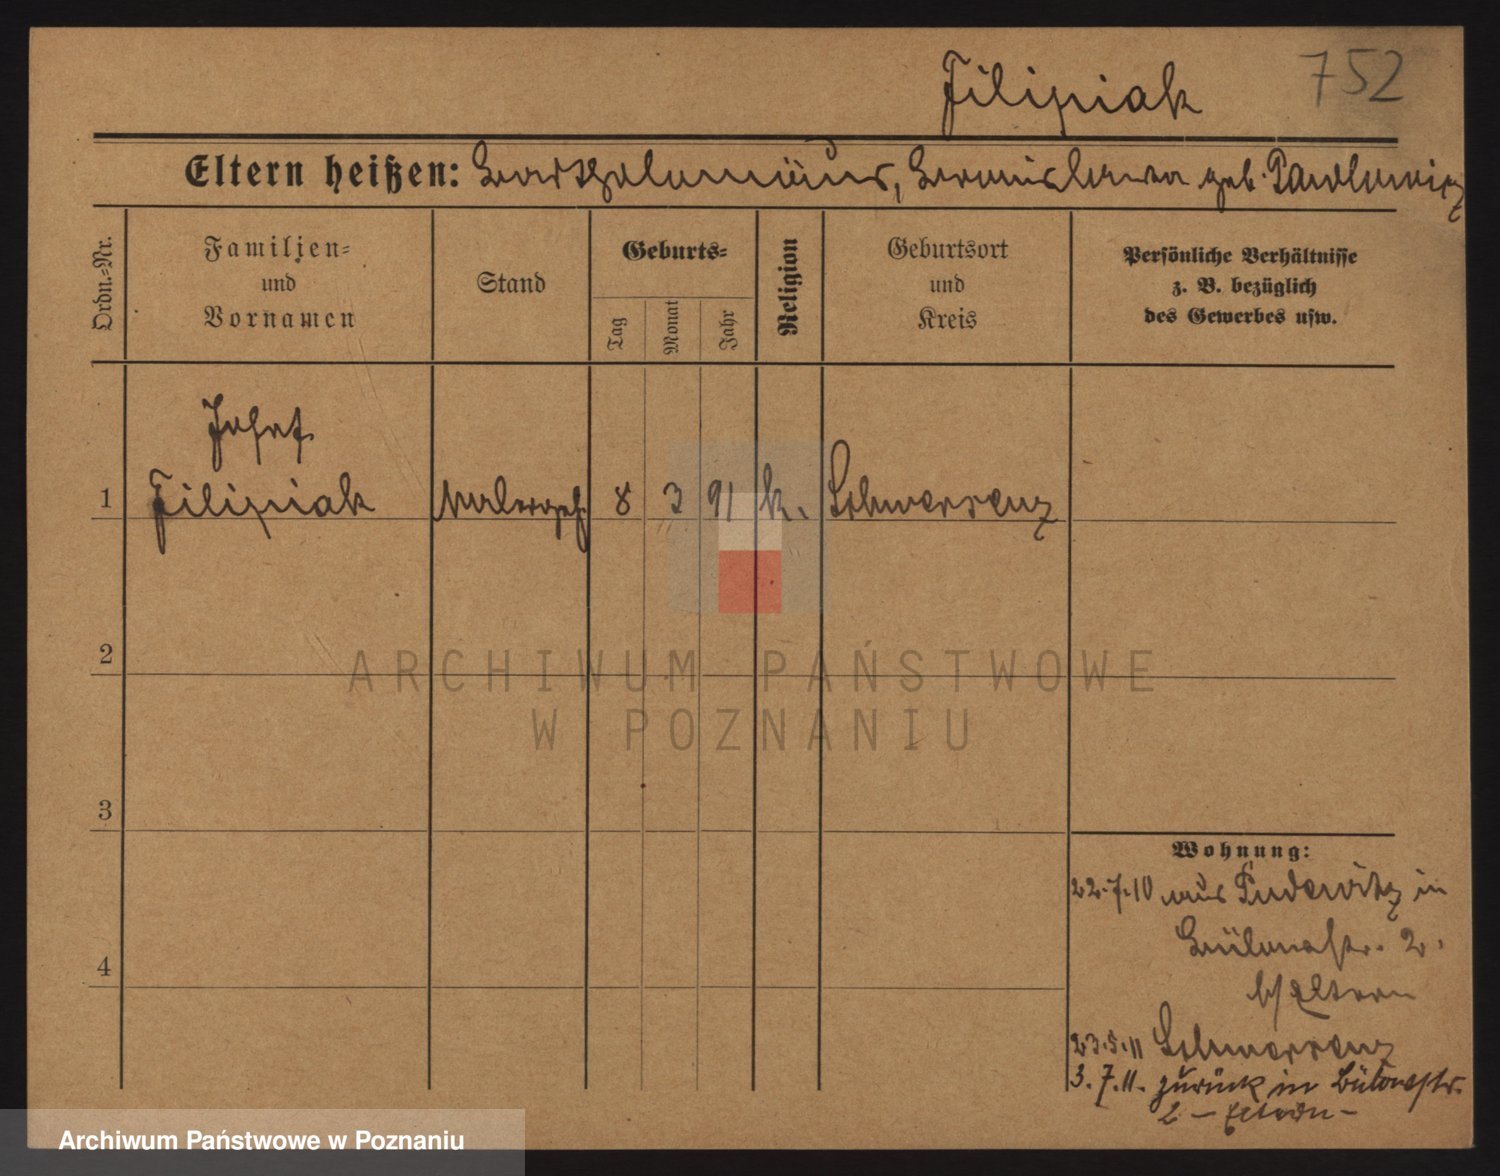 Filipiak 752
Eltern heißen: Bartholomäus, Bronislawa geb. Pawlowicz
Ordn.-Nr.
Familien-
und
Vornamen
Stand
Geburts-
Tag
Monat
Jahr
Religion
Geburtsort
und
Kreis
Persönliche Verhältnisse
z. B. bezüglich
des Gewerbes usw.
Josef
1 Filipiak Malergeh. 8 3 91 k. Schwersenz
2
ARCHIWUM PAŃSTWOWE
W POZNANIU
3
Wohnung:
22.7.10 aus Pudewitz in
Bülowstr. 2.
b/Eltern
4
23.5.11 Schwersenz
3.7.11. zurück in Bülowstr.
2 - Eltern -
Archiwum Państwowe w Poznaniu